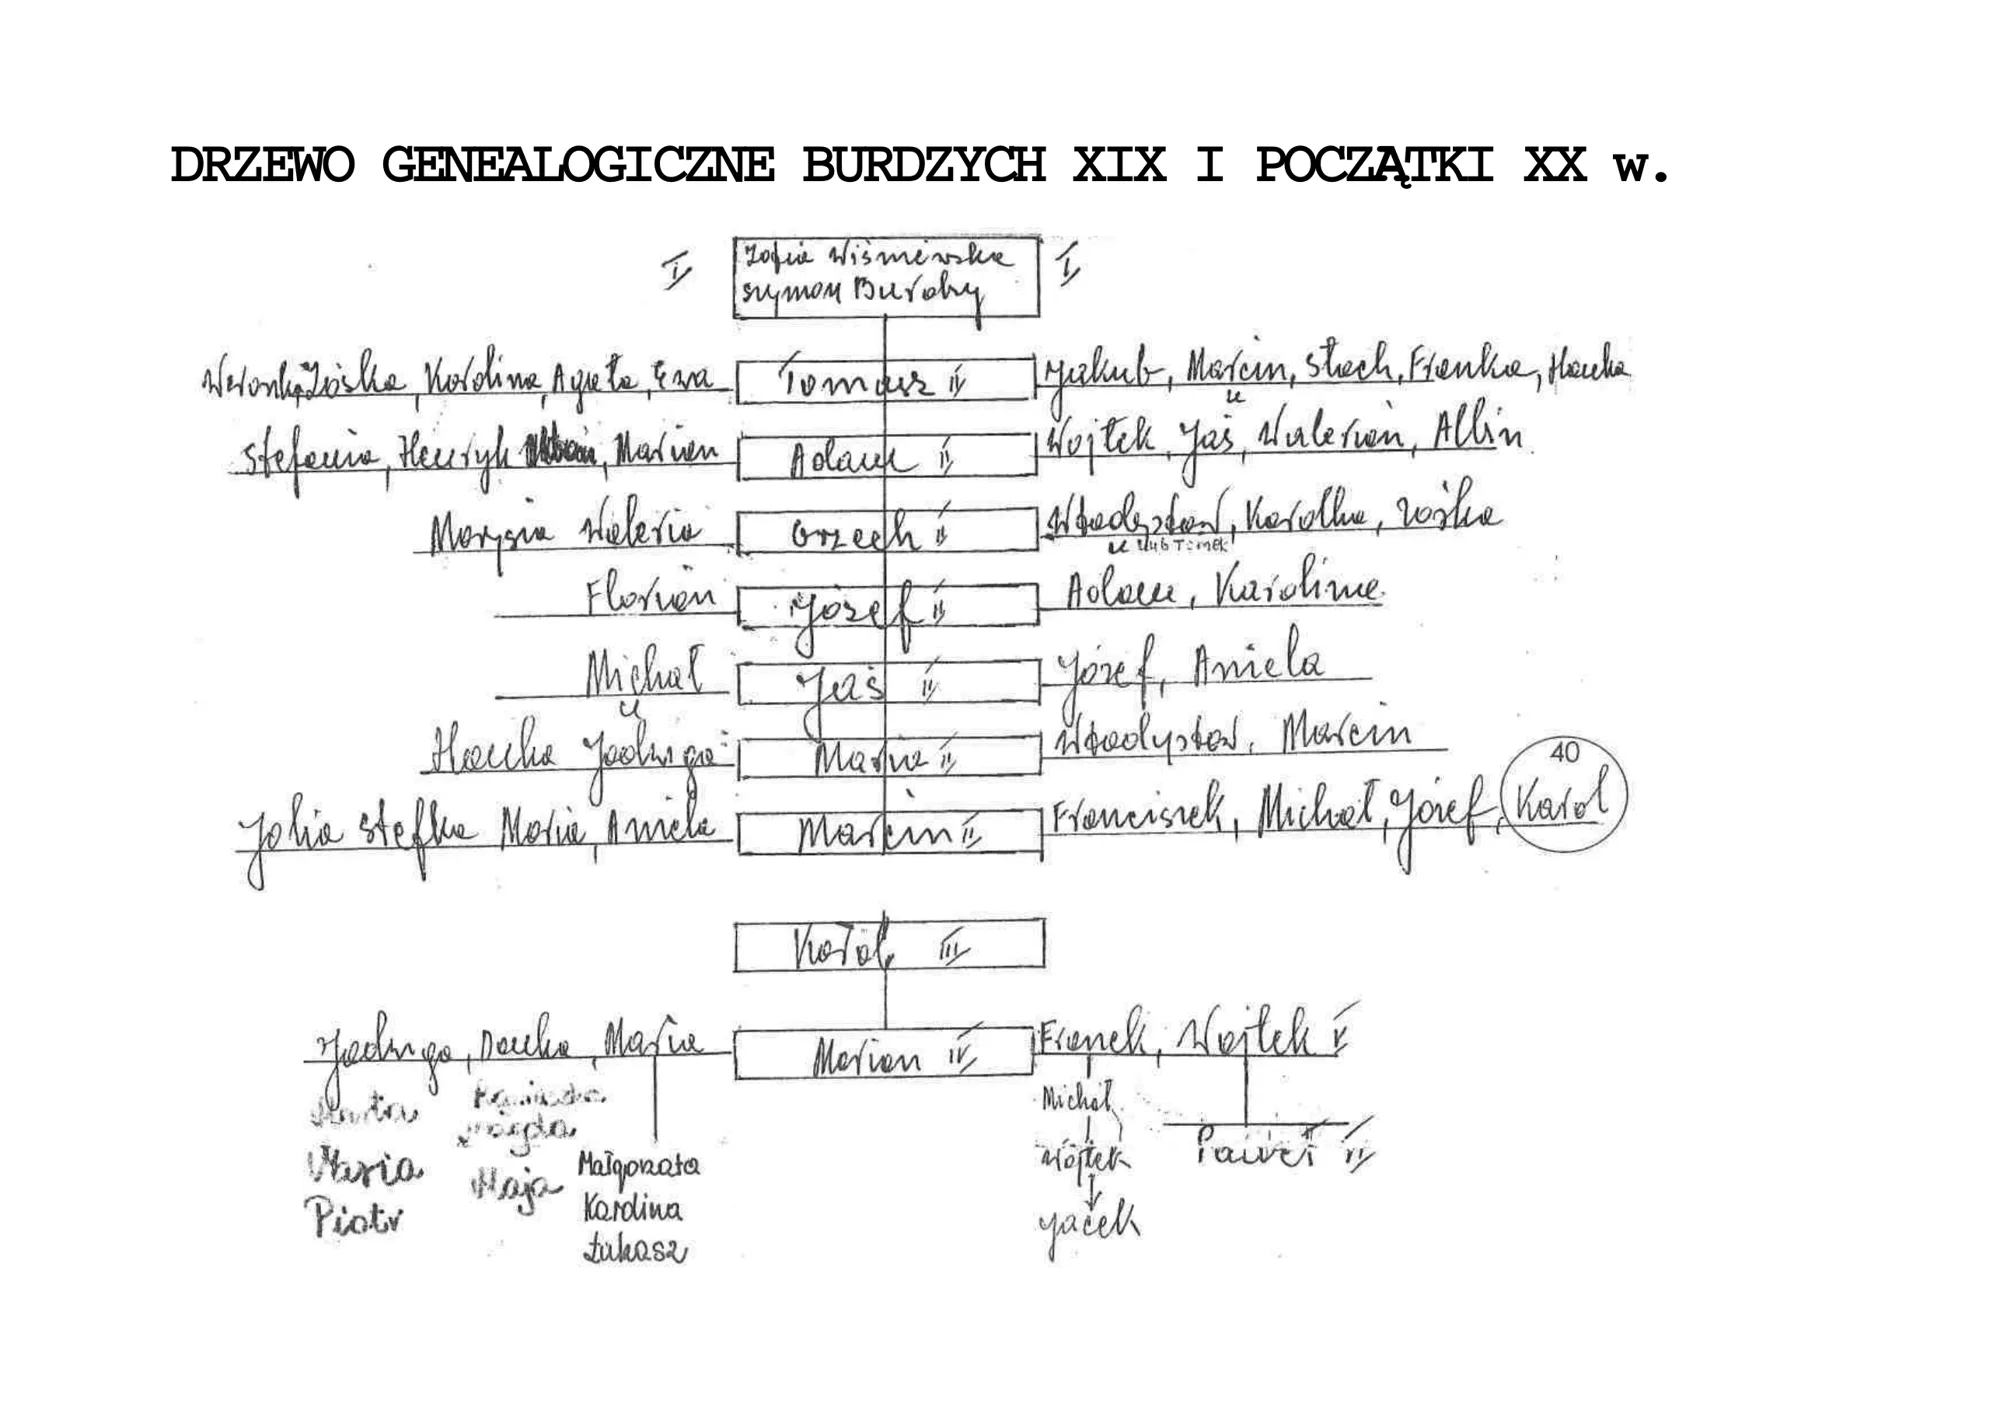 DRZEWO GENEALOGICZNE BURDZYCH XIX I POCZĄTKI XX w.
I Zofia Wiśniewska I
Szymon Burdzy
Weronka, Zośka, Karolina, Agata, Ewa Tomasz II Jakub, Marcin, Stach, Franka, Hanka
Stefania, Henryk, Marian Adam II Wojtek, Jaś, Walerian, Albin
Marysia Waleria Grzech II Władysław, Karolka, Zośka
lub Tomek
Florian Józef II Adam, Karolina
Michał Jaś II Józef, Aniela
Hanka Jadwiga Maria II Władysław, Marcin
40
Julia Stefka Maria, Aniela Marcin II Franciszek, Michał, Józef, Karol
Karol III
Jadwiga, Danka, Maria Marian IV Franek, Wojtek V
Marta Agnieszka Michał
Magda
Maria Maja Małgorzata Wojtek Paweł VI
Piotr Karolina Jacek
Łukasz